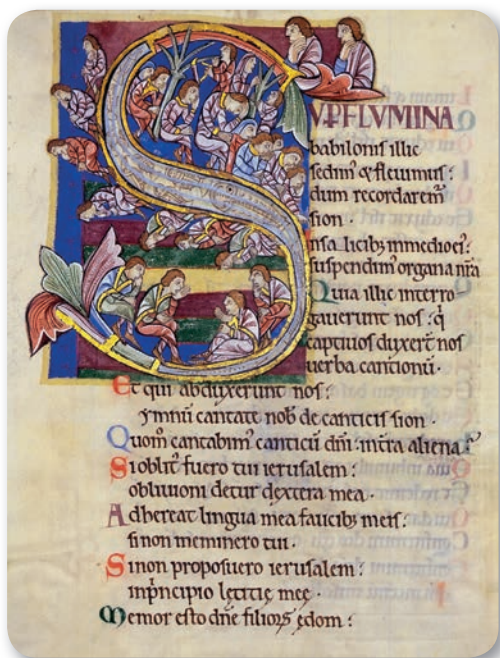 SUP FLUMINA
babilonis illic
sedim⁹ & fleuimus:
dum recordarem̄
sion.
In salicib; in medio ei⁹:
suspendim⁹ organa nr̄a
Quia illic interro-
gauerunt nos: q̇
captiuos duxer̄t nos
uerba cantionū.
Et qui abduxerunt nos:
ymnū cantate nob̄ de canticis sion.
Quom̄ cantabim⁹ canticū dn̄i: in t̄ra aliena?
Si oblit⁹ fuero tui ierusalem:
obliuioni detur dextera mea.
Adhereat lingua mea faucib; meis:
si non meminero tui.
Si non proposuero ierusalem:
in p̄ncipio lȩticiȩ meȩ.
Memor esto dn̄e filioꝝ ȩdom: